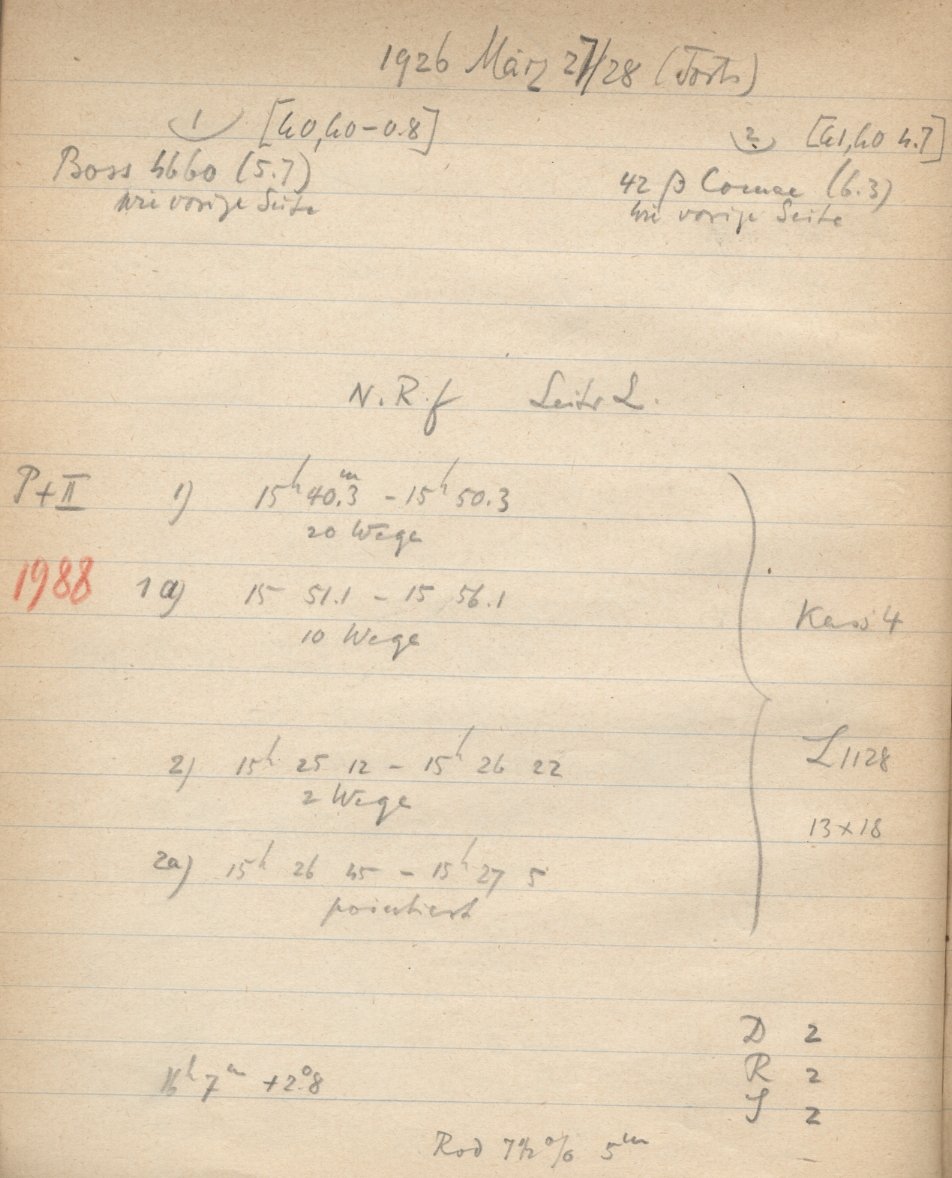 1926 März 27/28 (Forts)
1 [40,40-0.8] 2 [41,40 4.7]
Boss 4660 (5.7) 42 β Comae (6.3)
wie vorige Seite wie vorige Seite
N.R.f Seite L.
P+II 1) 15h 40.3m - 15h 50.3
20 Wege
1988 1a) 15 51.1 - 15 56.1
10 Wege
Kass 4
2) 15h 25 12 - 15h 26 22 L 1128
2 Wege
13x18
2a) 15h 26 45 - 15h 27 5
pointiert
D 2
16h 7m +2°.8 R 2
S 2
Rod 7½% 5m